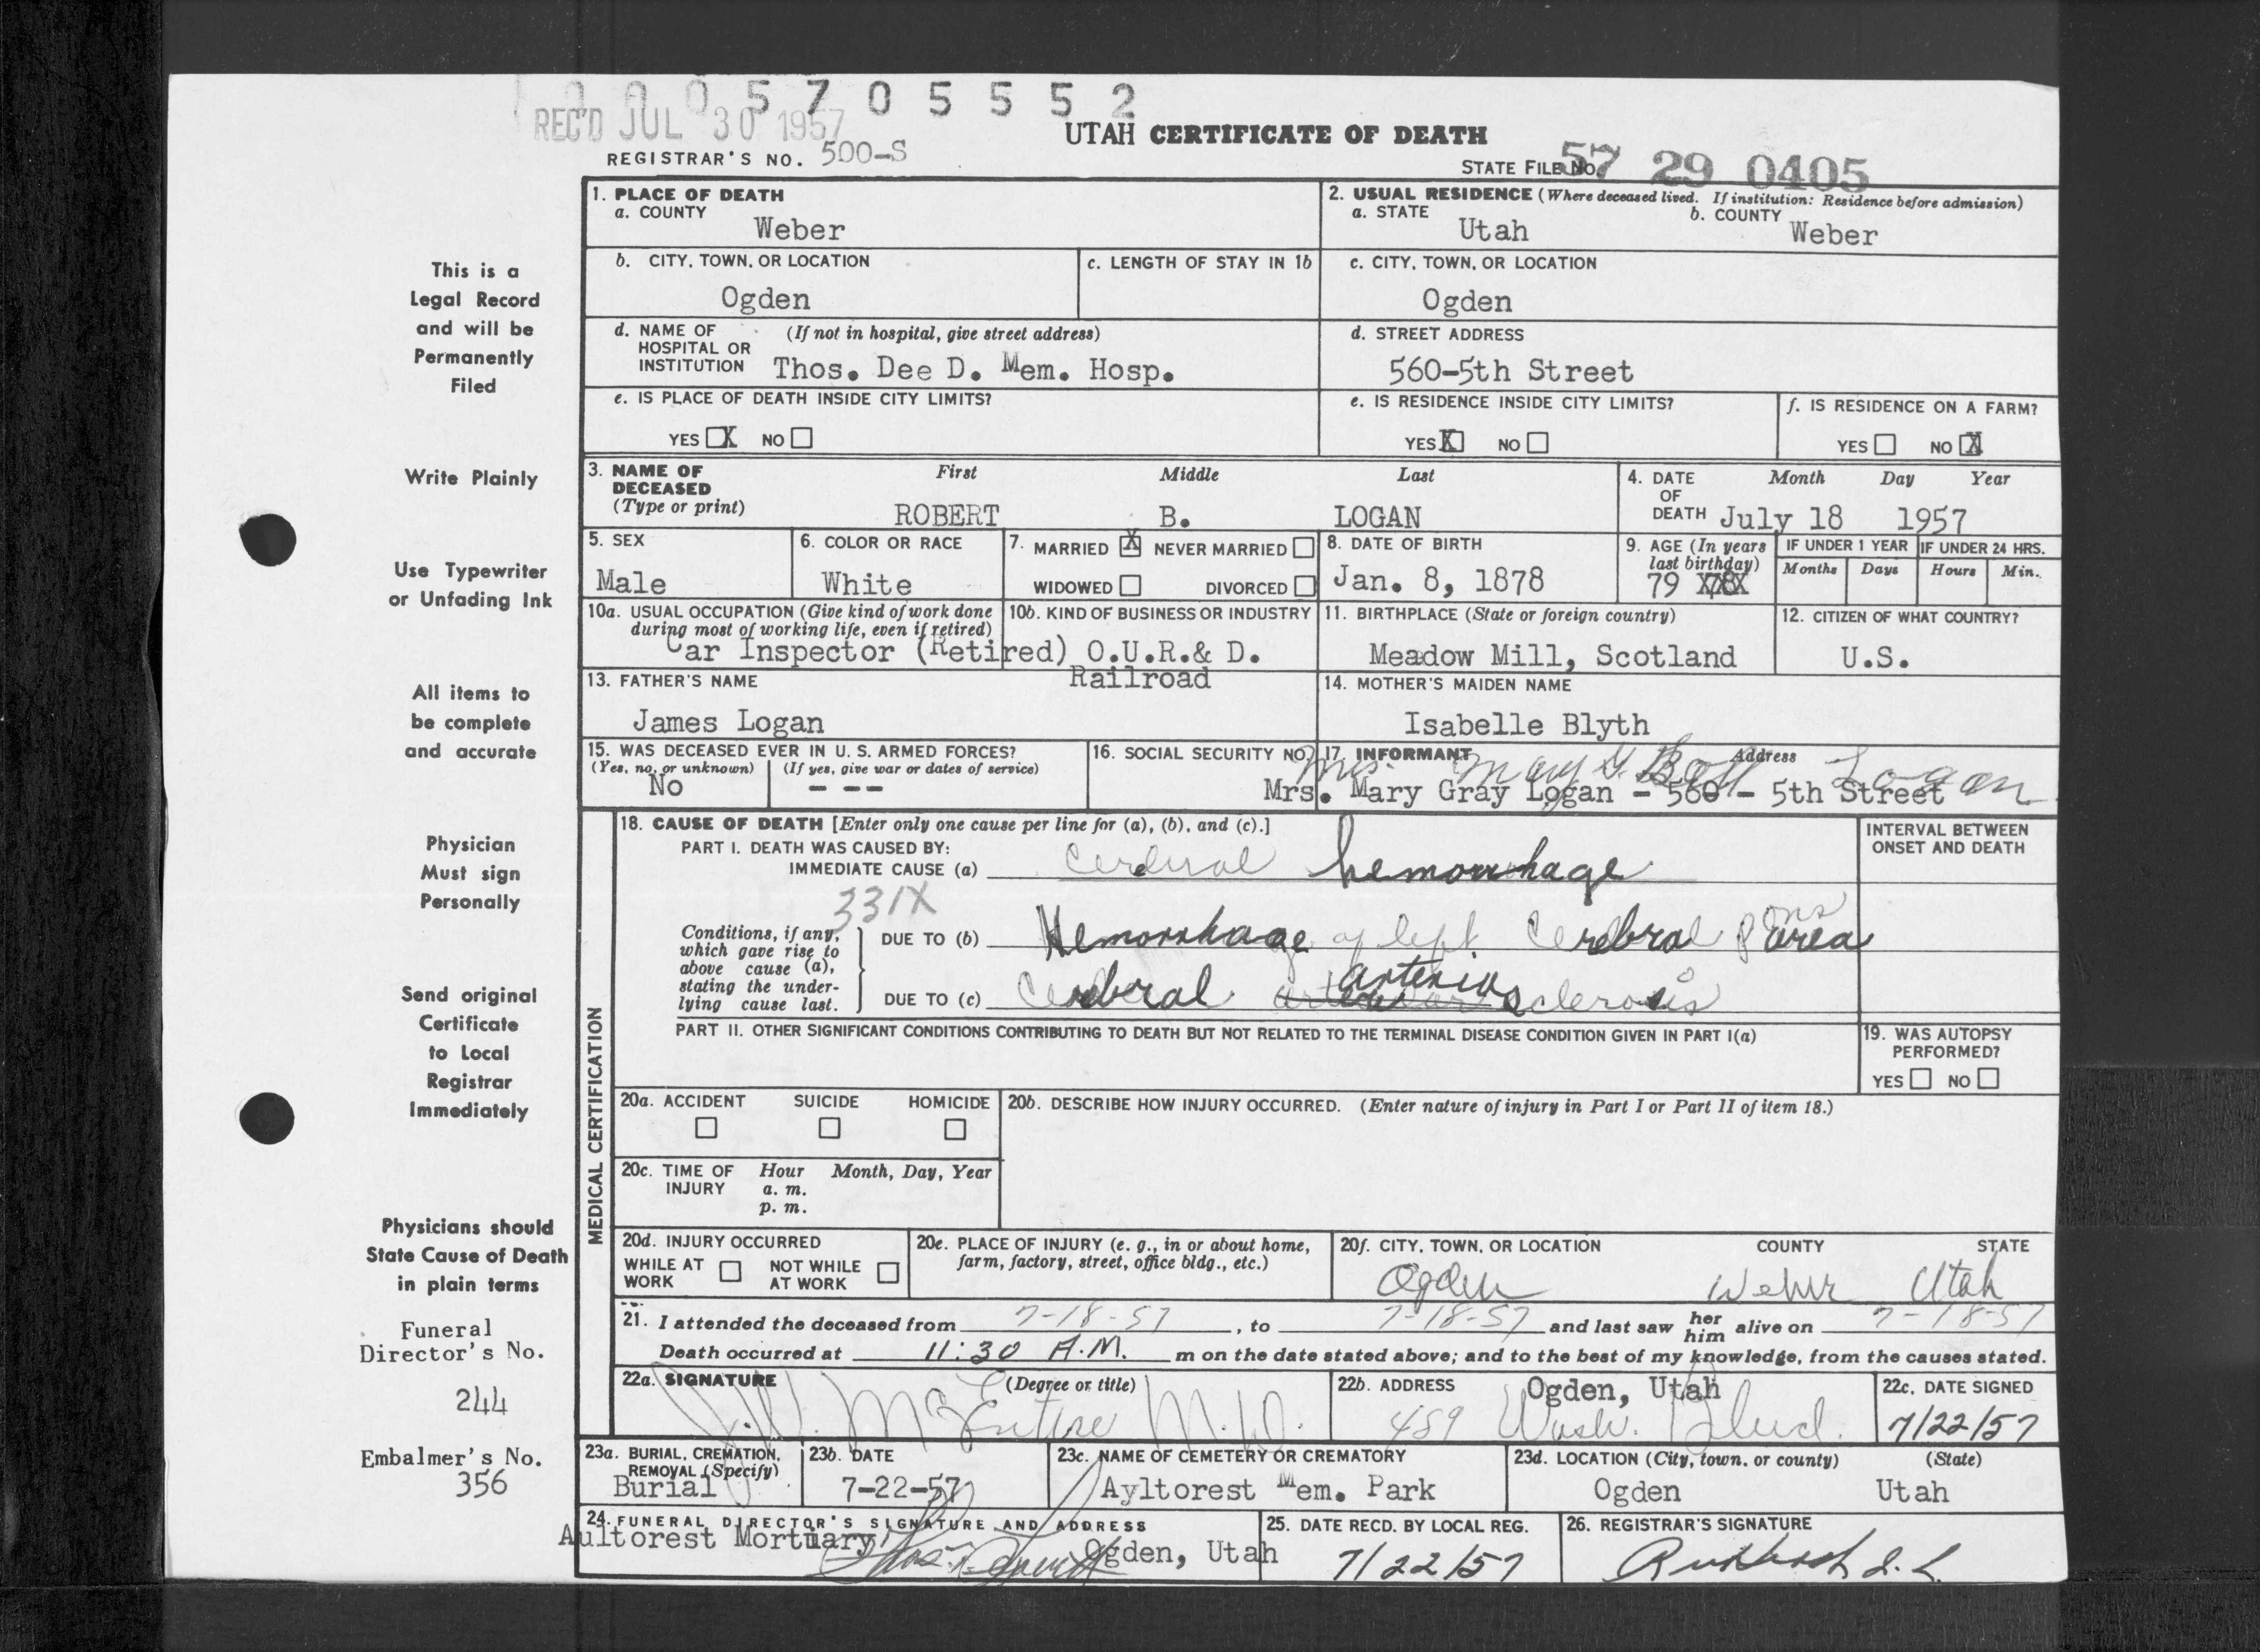 0 0 0 5 7 0 5 5 5 2
REC'D JUL 30 1957
UTAH CERTIFICATE OF DEATH
REGISTRAR'S NO. 500-S
STATE FILE NO. 57 29 0405
This is a
Legal Record
and will be
Permanently
Filed
Write Plainly
Use Typewriter
or Unfading Ink
All items to
be complete
and accurate
Physician
Must sign
Personally
Send original
Certificate
to Local
Registrar
Immediately
Physicians should
State Cause of Death
in plain terms
Funeral
Director's No.
244
Embalmer's No.
356
1. PLACE OF DEATH
a. COUNTY
Weber
2. USUAL RESIDENCE (Where deceased lived. If institution: Residence before admission)
a. STATE
Utah
b. COUNTY
Weber
b. CITY, TOWN, OR LOCATION
Ogden
c. LENGTH OF STAY IN 1b
c. CITY, TOWN, OR LOCATION
Ogden
d. NAME OF (If not in hospital, give street address)
HOSPITAL OR
INSTITUTION Thos. Dee D. Mem. Hosp.
d. STREET ADDRESS
560-5th Street
e. IS PLACE OF DEATH INSIDE CITY LIMITS?
YES X NO
e. IS RESIDENCE INSIDE CITY LIMITS?
YES X NO
f. IS RESIDENCE ON A FARM?
YES NO X
3. NAME OF First Middle Last
DECEASED
(Type or print) ROBERT B. LOGAN
4. DATE Month Day Year
OF
DEATH July 18 1957
5. SEX
Male
6. COLOR OR RACE
White
7. MARRIED X NEVER MARRIED
WIDOWED DIVORCED
8. DATE OF BIRTH
Jan. 8, 1878
9. AGE (In years
last birthday)
79 X78X
IF UNDER 1 YEAR IF UNDER 24 HRS.
Months Days Hours Min.
10a. USUAL OCCUPATION (Give kind of work done
during most of working life, even if retired)
Car Inspector (Retired)
10b. KIND OF BUSINESS OR INDUSTRY
O.U.R.& D.
Railroad
11. BIRTHPLACE (State or foreign country)
Meadow Mill, Scotland
12. CITIZEN OF WHAT COUNTRY?
U.S.
13. FATHER'S NAME
James Logan
14. MOTHER'S MAIDEN NAME
Isabelle Blyth
15. WAS DECEASED EVER IN U. S. ARMED FORCES?
(Yes, no, or unknown) (If yes, give war or dates of service)
No - - -
16. SOCIAL SECURITY NO.
17. INFORMANT Address
Mrs. Mary G. Logan
Mrs. Mary Gray Logan - 560 - 5th Street
MEDICAL CERTIFICATION
18. CAUSE OF DEATH [Enter only one cause per line for (a), (b), and (c).]
PART I. DEATH WAS CAUSED BY:
IMMEDIATE CAUSE (a) Cerebral hemorrhage
331X
Conditions, if any,
which gave rise to
above cause (a),
stating the under-
lying cause last.
DUE TO (b) Hemorrhage of left Cerebral pons area
DUE TO (c) Cerebral arterio sclerosis
INTERVAL BETWEEN
ONSET AND DEATH
PART II. OTHER SIGNIFICANT CONDITIONS CONTRIBUTING TO DEATH BUT NOT RELATED TO THE TERMINAL DISEASE CONDITION GIVEN IN PART I(a)
19. WAS AUTOPSY
PERFORMED?
YES NO
20a. ACCIDENT SUICIDE HOMICIDE
20b. DESCRIBE HOW INJURY OCCURRED. (Enter nature of injury in Part I or Part II of item 18.)
20c. TIME OF Hour Month, Day, Year
INJURY a. m.
p. m.
20d. INJURY OCCURRED
WHILE AT NOT WHILE
WORK AT WORK
20e. PLACE OF INJURY (e. g., in or about home,
farm, factory, street, office bldg., etc.)
20f. CITY, TOWN, OR LOCATION COUNTY STATE
Ogden Weber Utah
21. I attended the deceased from 7-18-57, to 7-18-57 and last saw her him alive on 7-18-57
Death occurred at 11:30 A.M. m on the date stated above; and to the best of my knowledge, from the causes stated.
22a. SIGNATURE (Degree or title)
McEntire M.D.
22b. ADDRESS Ogden, Utah
459 Wash. Blvd.
22c. DATE SIGNED
7/22/57
23a. BURIAL, CREMATION,
REMOVAL (Specify)
Burial
23b. DATE
7-22-57
23c. NAME OF CEMETERY OR CREMATORY
Ayltorest Mem. Park
23d. LOCATION (City, town, or county) (State)
Ogden Utah
24. FUNERAL DIRECTOR'S SIGNATURE AND ADDRESS
Aultorest Mortuary Ogden, Utah
25. DATE RECD. BY LOCAL REG.
7/22/57
26. REGISTRAR'S SIGNATURE